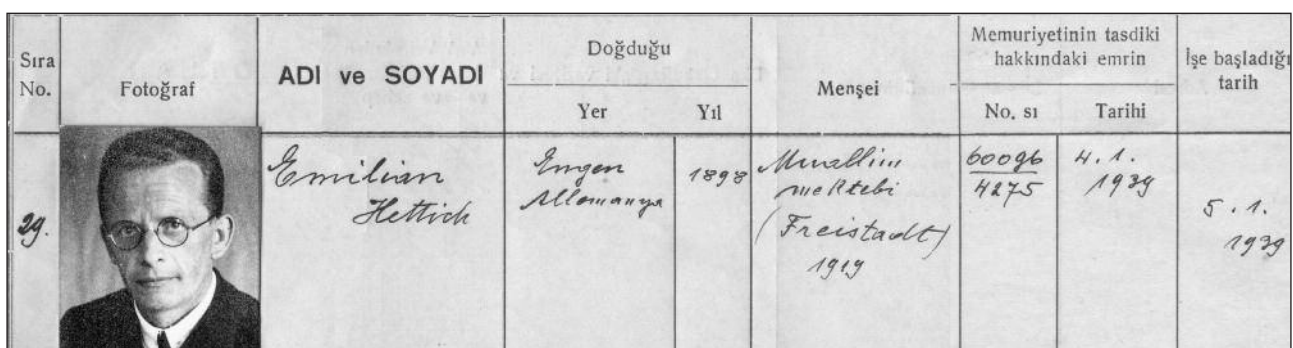 Sıra No.
Fotoğraf
ADI ve SOYADI
Doğduğu
Yer
Yıl
Menşei
Memuriyetinin tasdiki
hakkındaki emrin
No. sı
Tarihi
İşe başladığı
tarih
29.
Emilian
Hettich
Engen
Allemanya
1898
Muallim
mektebi
(Freistadt)
1919
60096
4275
4.1.
1939
5.1.
1939